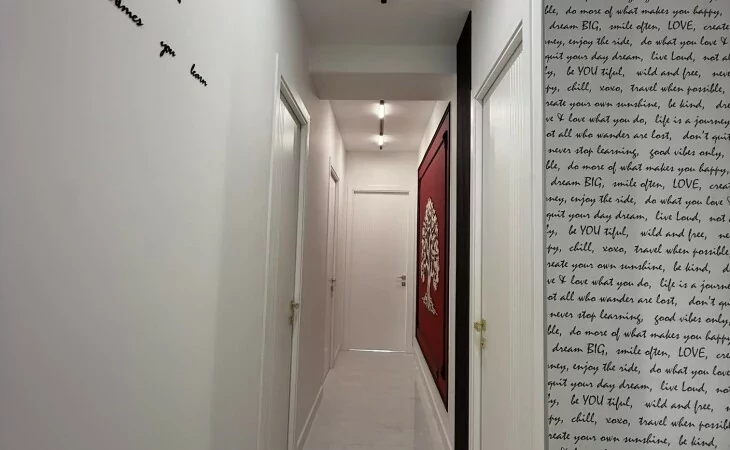 you learn
ble, do more of what makes you happy,
dream BIG, smile often, LOVE, create
ney, enjoy the ride, do what you love &
quit your day dream, live Loud, not al
y, be YOU tiful, wild and free, neve
py, chill, xoxo, travel when possible,
reate your own sunshine, be kind, dre
ve & love what you do, life is a journey
ot all who wander are lost, don't quit
never stop learning, good vibes only,
ble, do more of what makes you happy,
dream BIG, smile often, LOVE, creat
ney, enjoy the ride, do what you love &
quit your day dream, live Loud, not a
y, be YOU tiful, wild and free, ne
py, chill, xoxo, travel when possible,
reate your own sunshine, be kind, d
ve & love what you do, life is a journe
ot all who wander are lost, don't qu
never stop learning, good vibes only,
ble, do more of what makes you happy
dream BIG, smile often, LOVE, cre
ney, enjoy the ride, do what you love
quit your day dream, live Loud, no
y, be YOU tiful, wild and free, n
py, chill, xoxo, travel when possibl
reate your own sunshine, be kind,